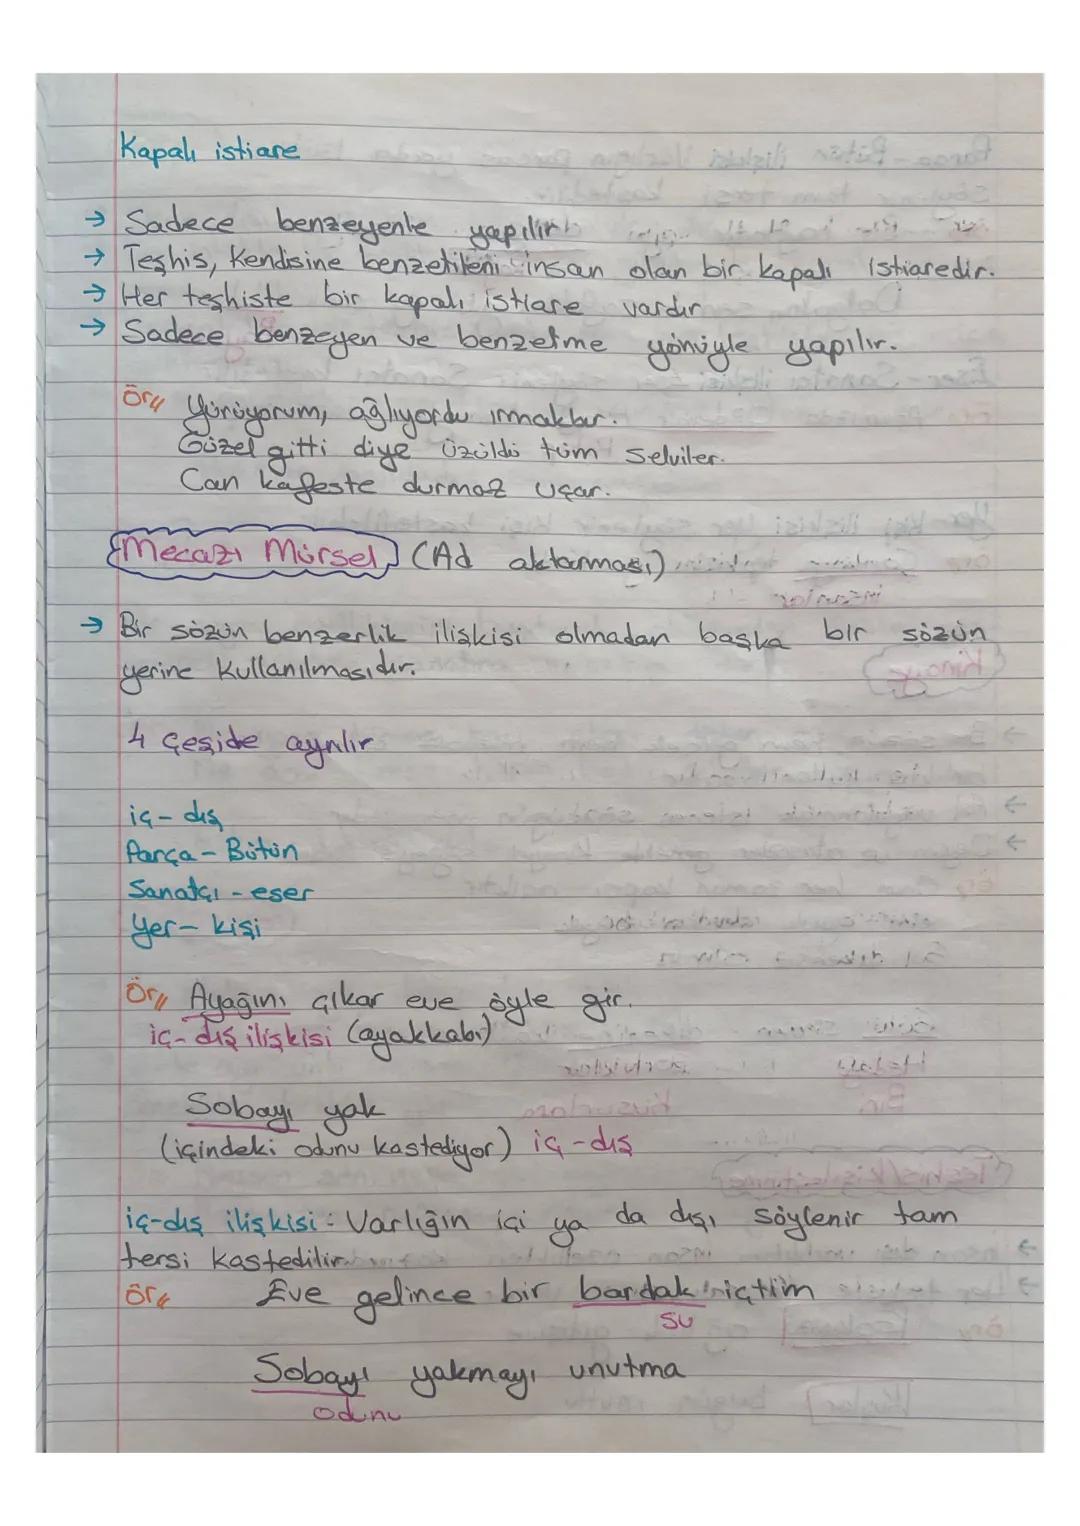 Kapalı istiare
→ Sadece benzeyenle yapılır
→ Teşhis, Kendisine benzetileni insan olan bir kapalı istiaredir.
→ Her teşhiste bir kapalı istiare vardır
→ Sadece benzeyen ve benzetme yönüyle yapılır.
Ör// Yürüyorum, ağlıyordu ırmaklar.
Güzel gitti diye üzüldü tüm Selviler.
Can kafeste durmaz uçar.
Mecazı Mürsel (Ad aktarması)
→ Bir sözün benzerlik ilişkisi olmadan başka bir sözün
yerine Kullanılmasıdır.
4 çeşide ayrılır
iç - dış
Parça - Bütün
Sanatçı - eser
Yer - kişi
Ör// Ayağını çıkar eve öyle gir.
iç - dış ilişkisi (ayakkabı)
Sobayı yak
(içindeki odunu kastediyor) iç - dış
iç-dış ilişkisi: Varlığın içi ya da dışı söylenir tam
tersi kastedilir
Ör// Eve gelince bir bardak içtim
su
Sobayı yakmayı unutma
odunu